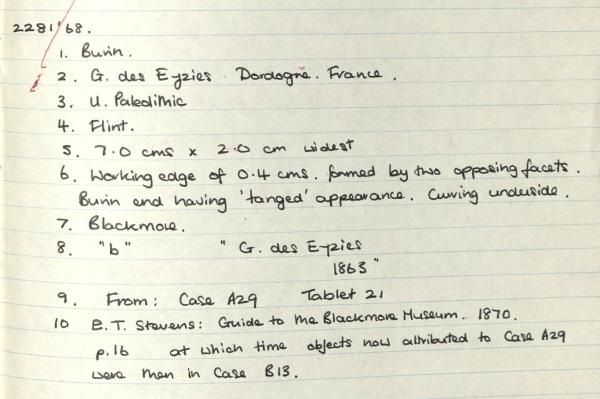 2281'68.
1. Burin.
2. G. des Eyzies Dordogne. France.
3. U. Paleolithic
4. Flint.
5. 7.0 cms x 2.0 cm widest
6. Working edge of 0.4 cms. formed by two opposing facets.
Burin end having 'tanged' appearance. Curving underside.
7. Blackmore.
8. "b" " G. des Eyzies
1863"
9. From: Case A29 Tablet 21
10 E.T. Stevens: Guide to the Blackmore Museum. 1870.
p.16 at which time objects now attributed to Case A29
were then in Case B13.